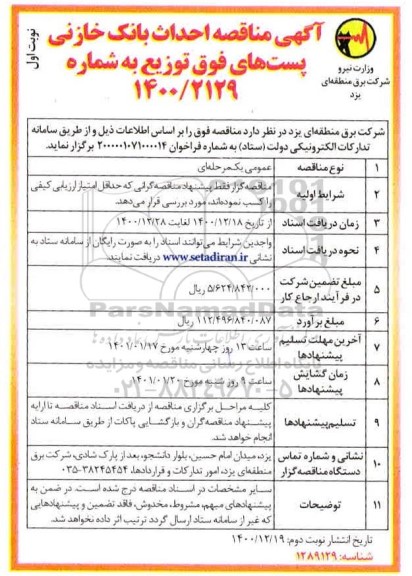 نوبت اول
وزارت نیرو
شرکت برق منطقه‌ای
یزد
آگهی مناقصه احداث بانک خازنی
پست‌های فوق توزیع به شماره
۱۴۰۰/۲۱۲۹
شرکت برق منطقه‌ای یزد در نظر دارد مناقصه فوق را بر اساس اطلاعات ذیل و از طریق سامانه
تدارکات الکترونیکی دولت (ستاد) به شماره فراخوان ۲۰۰۰۰۰۱۰۷۱۰۰۰۰۱۴ برگزار نماید.
۱ نوع مناقصه عمومی یک‌مرحله‌ای
۲ شرایط اولیه مناقصه‌گزار فقط پیشنهاد مناقصه‌گرانی که حداقل امتیاز ارزیابی کیفی
را کسب نموده‌اند، مورد بررسی قرار می‌دهد.
۳ زمان دریافت اسناد از تاریخ ۱۴۰۰/۱۲/۱۸ لغایت ۱۴۰۰/۱۲/۲۸
۴ نحوه دریافت اسناد واجدین شرایط می‌توانند اسناد را به صورت رایگان از سامانه ستاد به
نشانی www.setadiran.ir دریافت نمایند.
۵ مبلغ تضمین شرکت
در فرآیند ارجاع کار ۵/۶۲۴/۸۴۲/۰۰۰ ریال
۶ مبلغ برآورد ۱۱۲/۴۹۶/۸۴۰/۰۸۷ ریال
۷ آخرین مهلت تسلیم
پیشنهادها ساعت ۱۳ روز چهارشنبه مورخ ۱۴۰۱/۰۱/۱۷
۸ زمان گشایش
پیشنهادها ساعت ۹ روز شنبه مورخ ۱۴۰۱/۰۱/۲۰
۹ تسلیم پیشنهادها کلیه مراحل برگزاری مناقصه از دریافت اسناد مناقصه تا ارایه
پیشنهاد مناقصه‌گران و بازگشایی پاکات از طریق سامانه ستاد
انجام خواهد شد.
۱۰ نشانی و شماره تماس
دستگاه مناقصه‌گزار یزد، میدان امام حسین، بلوار دانشجو، بعد از پارک شادی، شرکت برق
منطقه‌ای یزد، امور تدارکات و قراردادها، ۳۸۲۴۵۴۵۴-۰۳۵
۱۱ توضیحات سایر مشخصات در اسناد مناقصه درج شده است. در ضمن به
پیشنهادهای مبهم، مشروط، مخدوش، فاقد تضمین و پیشنهادهایی
که غیر از سامانه ستاد ارسال گردد ترتیب اثر داده نخواهد شد.
تاریخ انتشار نوبت دوم: ۱۴۰۰/۱۲/۱۹
شناسه: ۱۲۸۹۱۲۹
ParsNamadData